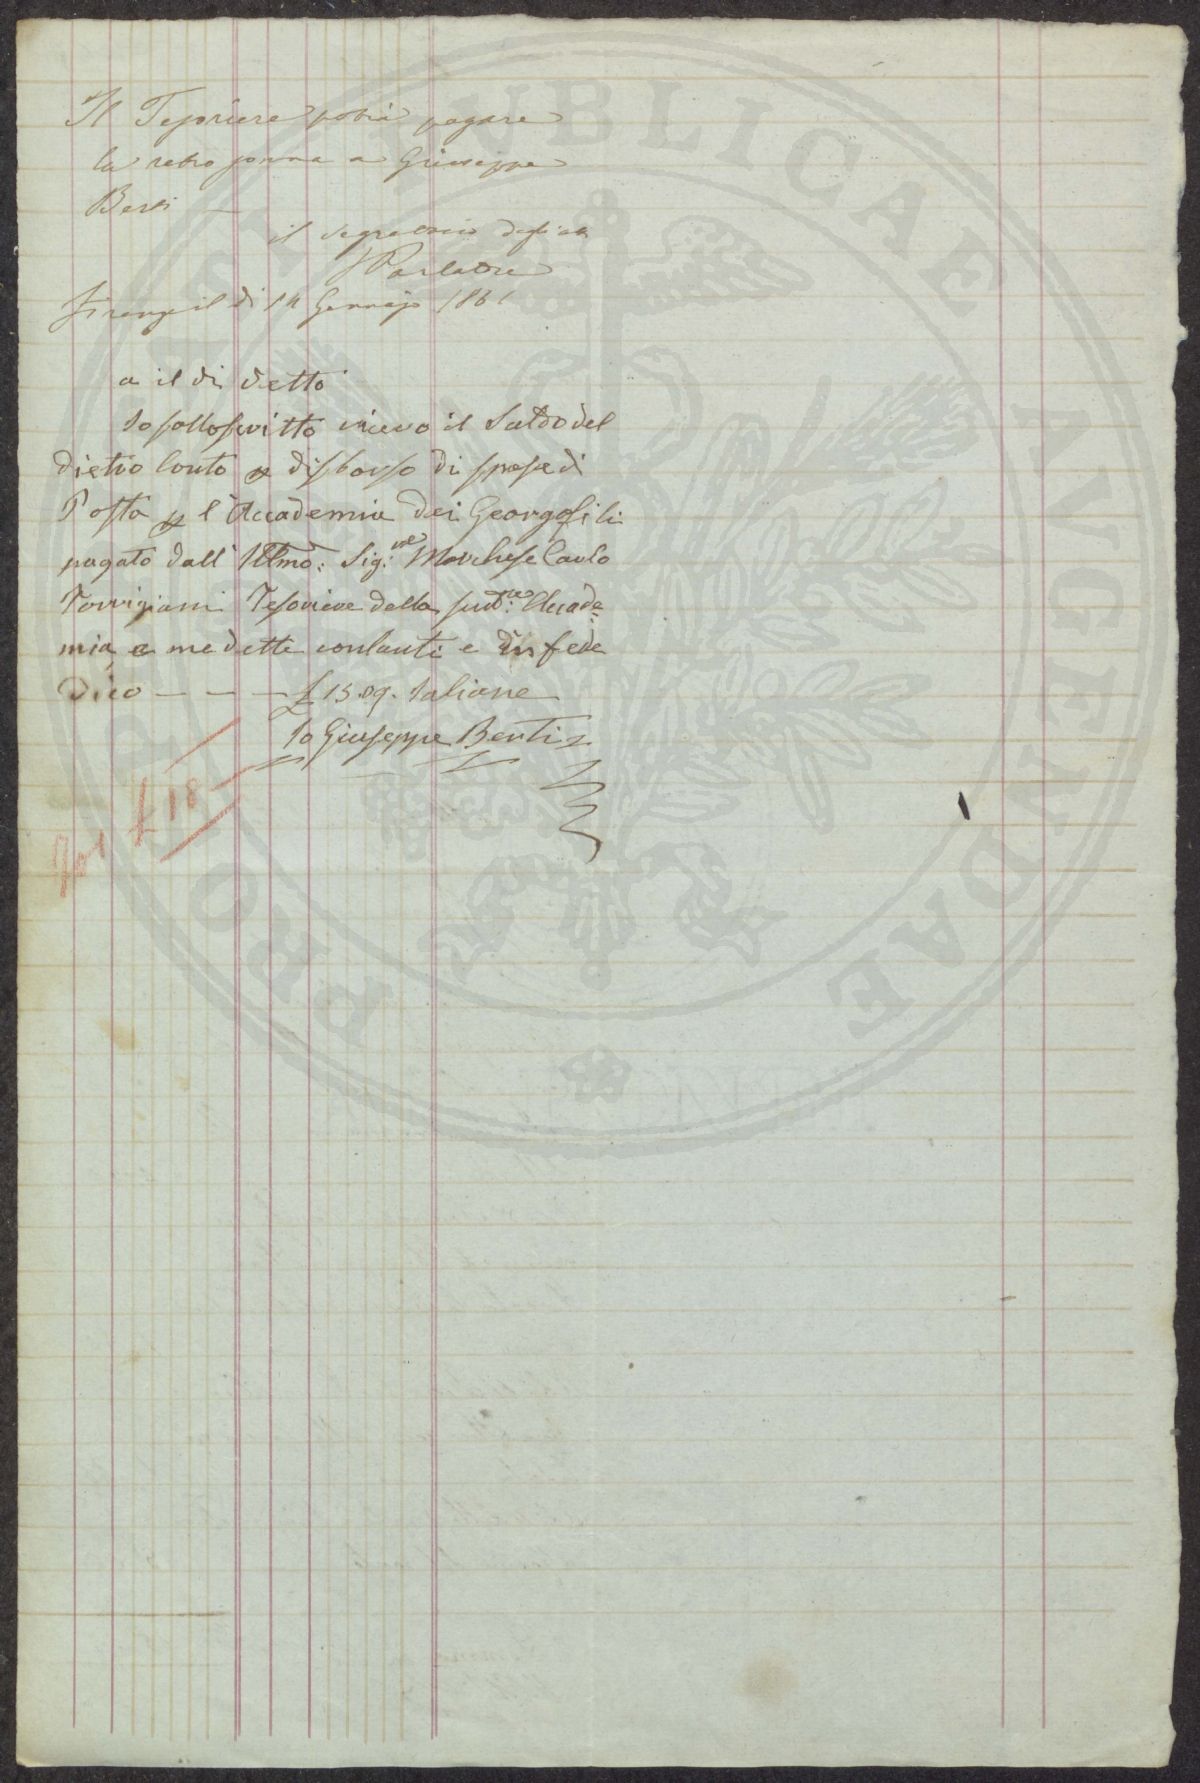 Il Tesoriere potrà pagare
la retro somma a Giuseppe
Berti —
il segretario degli atti
Parlatore
Firenze il dì 14 Gennajo 1861
a il di detto
Io sottoscritto ricevo il Saldo del
dietro Conto p disborso di spese di
Posta p l'Accademia dei Georgofili
pagato dall' Illmo: Sig:re Marchese Carlo
Torrigiani Tesoriere della sud:ta Accade=
mia a me detti contanti e in fede
Dico — — — £ 15.09. Italiane
Io Giuseppe Berti
£ 18
PROSPERITATI PUBLICAE AUGENDAE